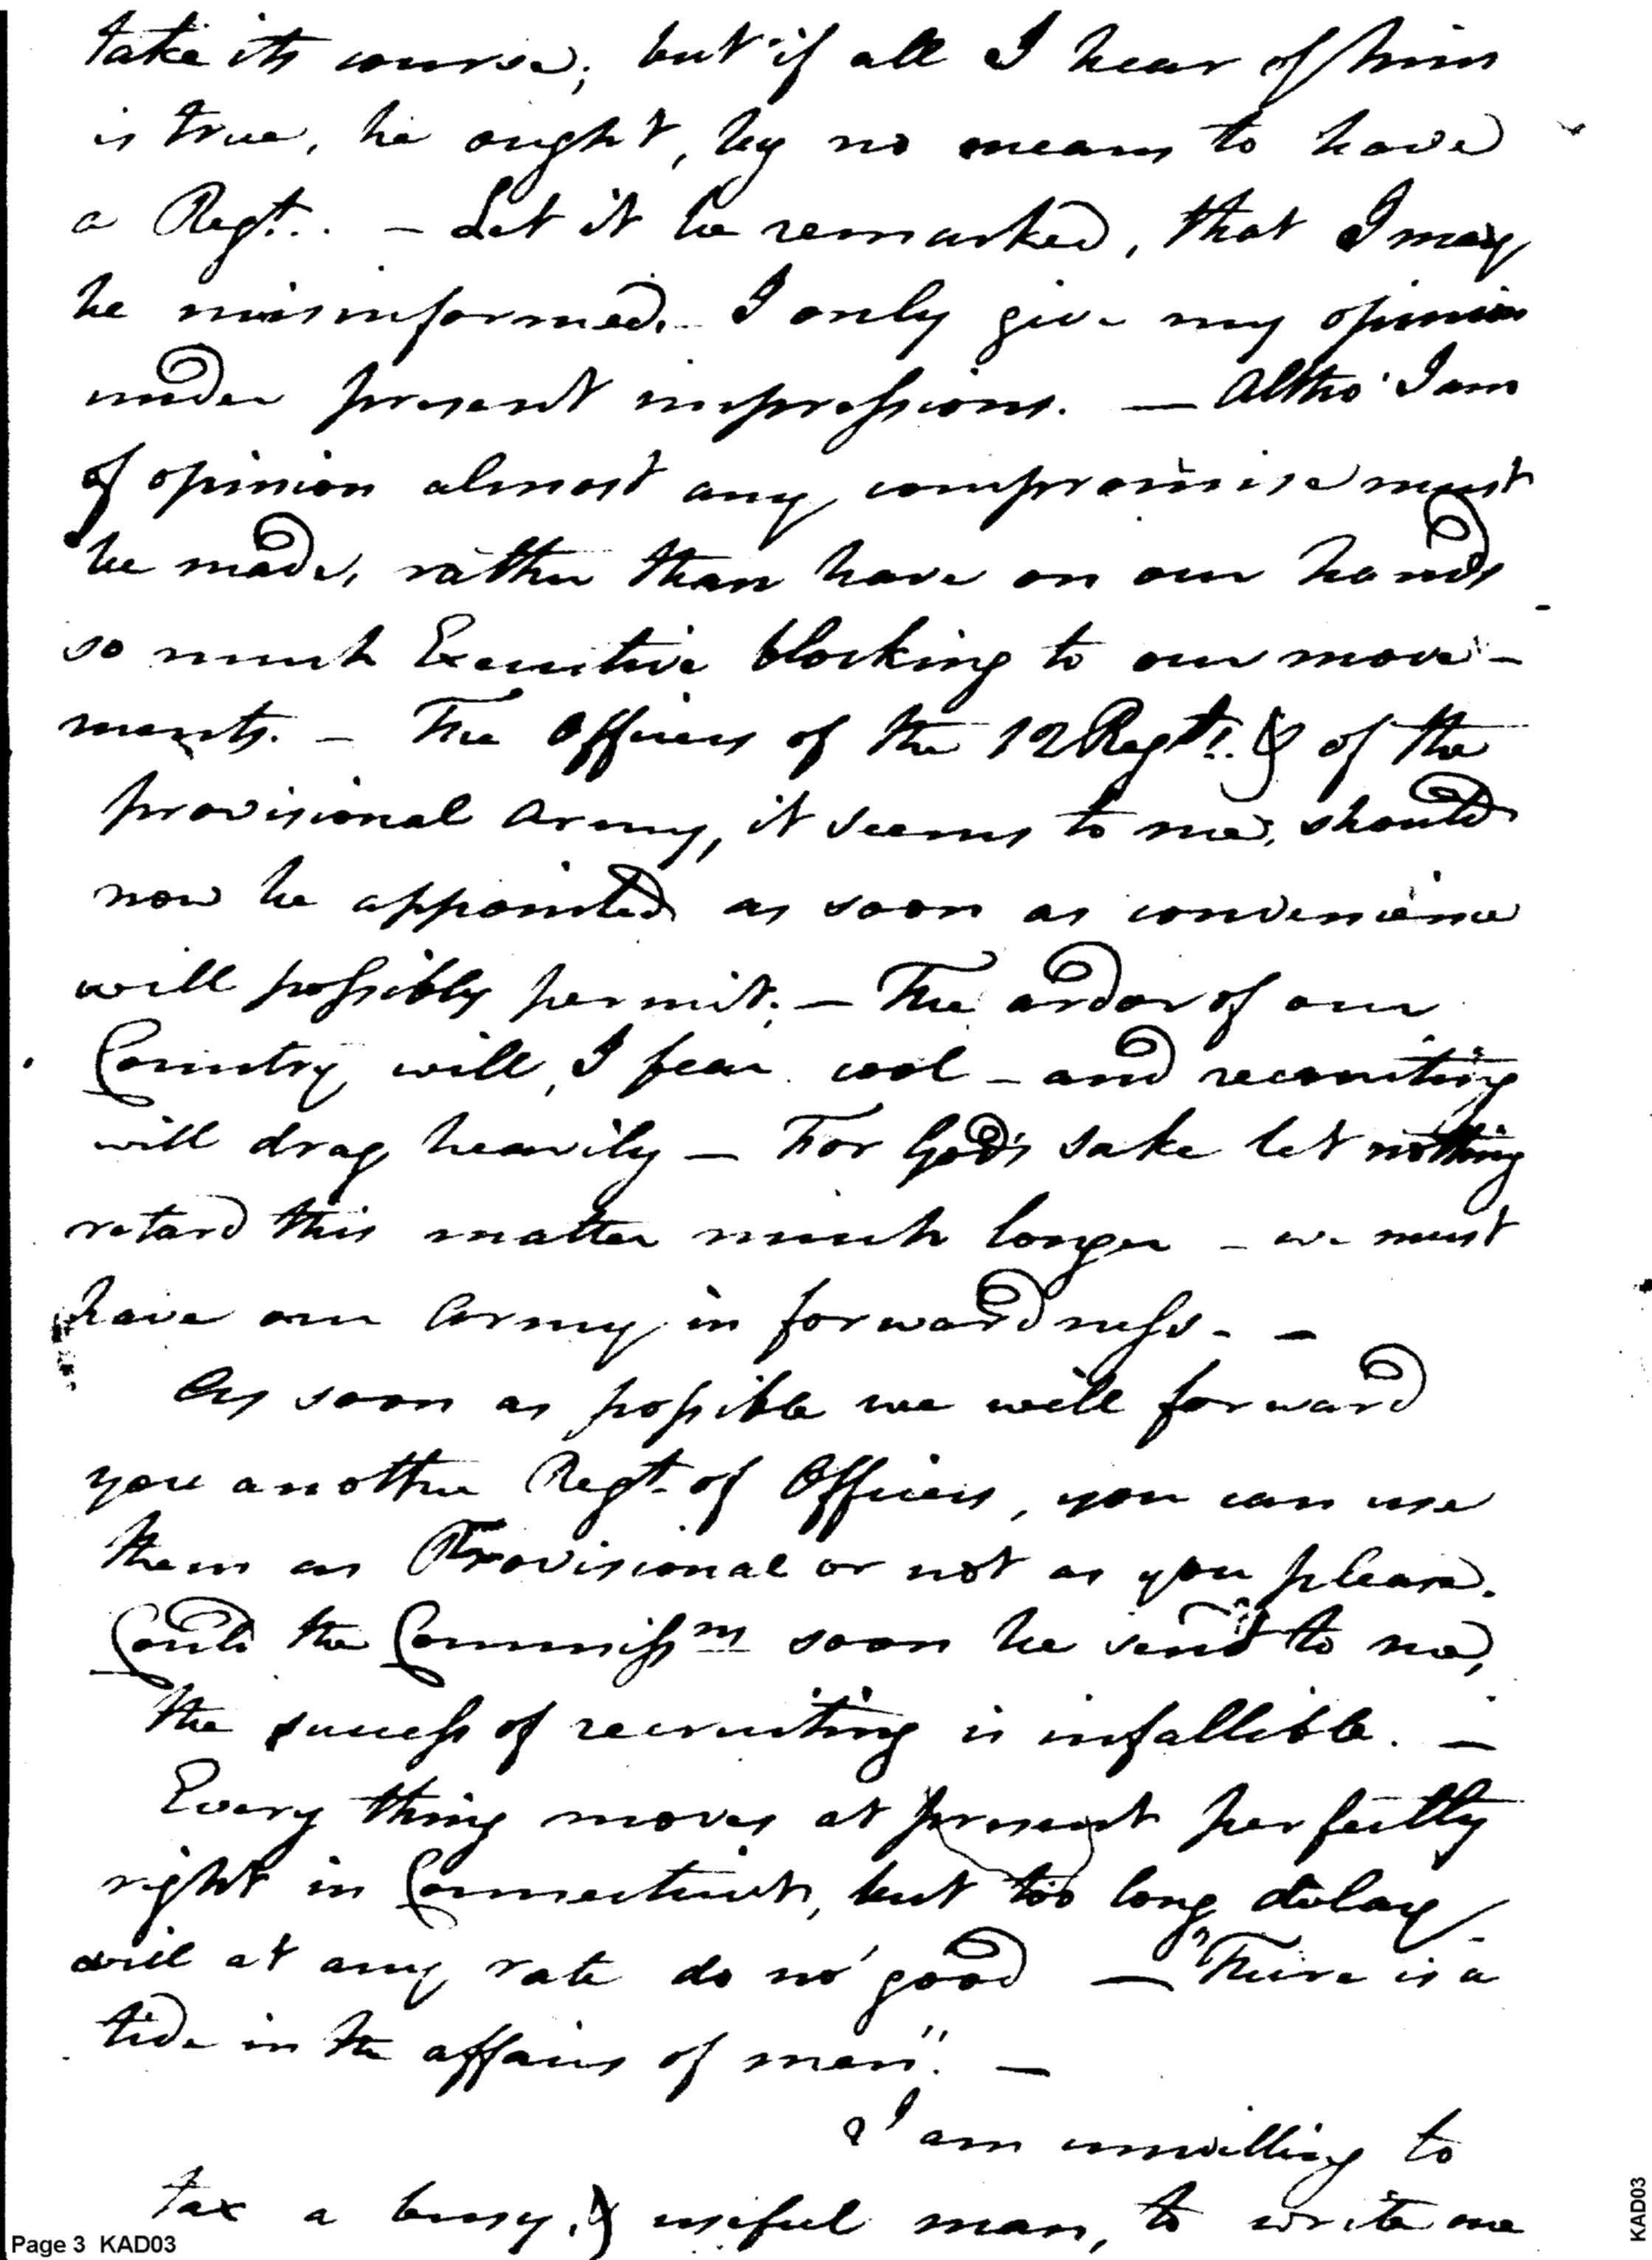 take its course; but if all I hear of him
is true, he ought, by no means to have
a Regt.. – Let it be remarked, that I may
be misinformed. – I only give my opinion
under present impressions. — Altho' I am
of opinion almost any compromise must
be made, rather than have on our hands
so much Executive blocking to our move-
ments. – The Officers of the 12 Regts. & of the
provisional Army, it seems to me, should
now be appointed as soon as convenience
will possibly permit; – The ardor of our
Country will, I fear cool – and recruiting
will drag heavily – For God's sake let nothing
retard this matter much longer – we must
have our Army in forwardness. –
As soon as possible we will forward
you another Regt. of Officers, you can use
them as Provisional or not as you please.
Could the Commissns soon be send to me,
the success of recruiting is infallible. —
Every thing moves at present perfectly
right in Connecticut, but too long delay
will at any rate do no good — "There is a
tide in the affairs of men". —
I am unwilling to
tax a busy, & useful man, to write me
Page 3 KAD03
KAD03